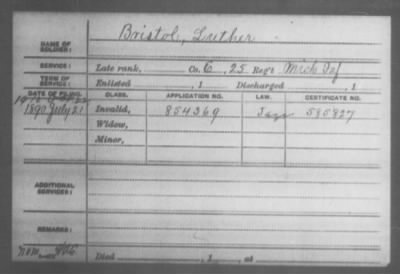 Bristol, Luther
NAME OF SOLDIER:
SERVICE: Late rank, Co. C, 25 Reg't Mich Inf
TERM OF SERVICE: Enlisted , 1 Discharged , 1
DATE OF FILING. CLASS. APPLICATION NO. LAW. CERTIFICATE NO.
1890 July 21 Invalid, 854369 585827
Widow,
Minor,
ADDITIONAL SERVICES:
REMARKS:
Died , 1 , at